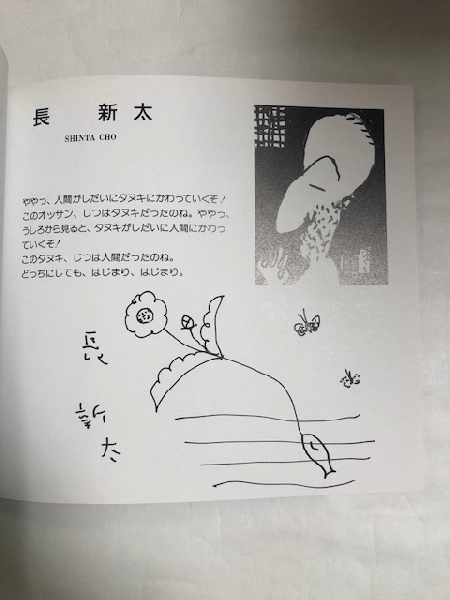 長 新太
SHINTA CHO
ややっ、人間がしだいにタヌキにかわっていくぞ！
このオッサン、じつはタヌキだったのね。ややっ、
うしろから見ると、タヌキがしだいに人間にかわっ
ていくぞ！
このタヌキ、じつは人間だったのね。
どっちにしても、はじまり、はじまり。
長
新
太